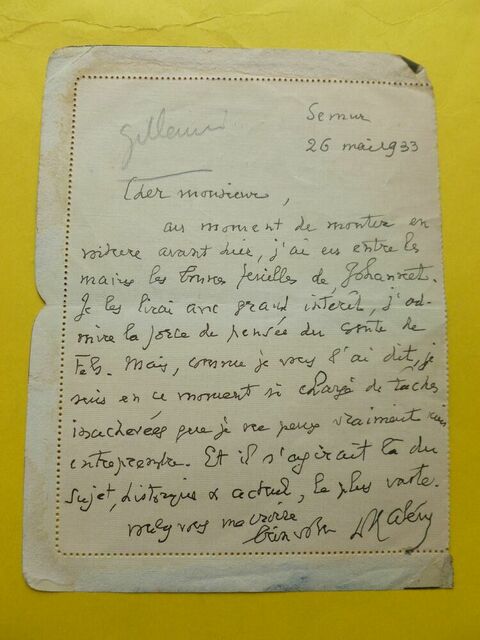 Semur
26 mai 1933
Cher monsieur,
au moment de monter en
voiture avant hier, j'ai eu entre les
mains les bonnes feuilles de Johannet.
Je les lirai avec grand intérêt, j'ad-
mire la force de pensée du comte de
Fels. Mais, comme je vous l'ai dit, je
suis en ce moment si chargé de tâches
inachevées que je ne peux vraiment rien
entreprendre. Et il s'agirait là du
sujet, historique & actuel, le plus vaste.
veuillez vous me croire
bien vôtre